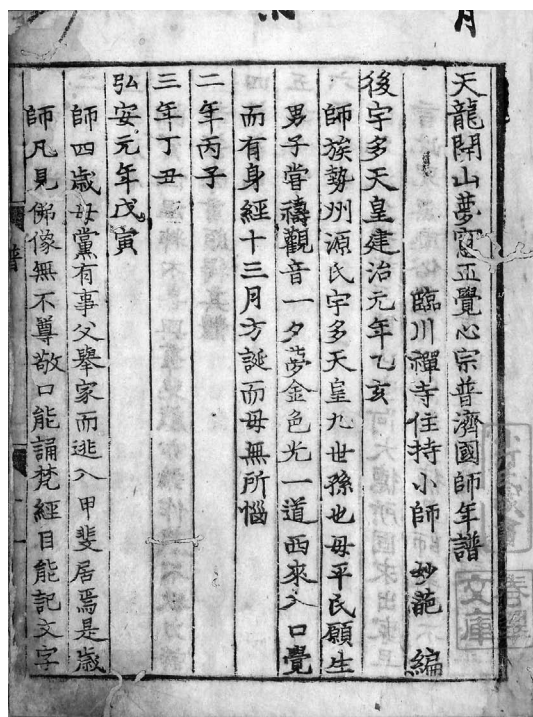 天龍開山夢窓正覺心宗普濟國師年譜
臨川禪寺住持小師 妙葩 編
後宇多天皇建治元年乙亥
師族勢州源氏宇多天皇九世孫也母平民願生
男子嘗禱觀音一夕夢金色光一道西來入口覺
而有身經十三月方誕而母無所惱
二年丙子
三年丁丑
弘安元年戊寅
師四歳母黨有事父舉家而逃入甲斐居焉是歳
師凡見佛像無不尊敬口能誦梵經目能記文字
文庫